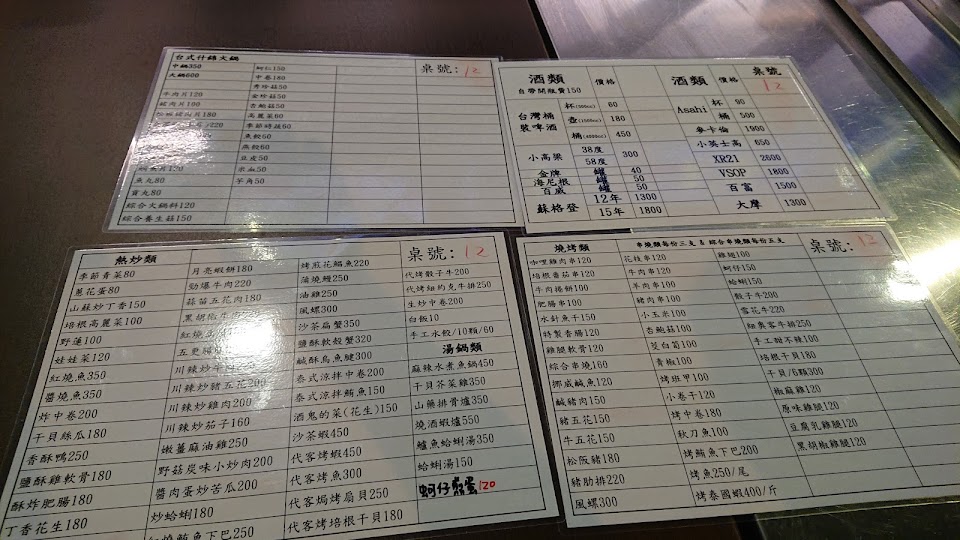 台式什錦火鍋
桌號: 12
中鍋350
蚵仁150
火鍋600
中卷180
秀珍菇50
牛肉片120
金珍菇50
豬肉片100
杏鮑菇50
高麗菜60
季節時蔬60
魚餃50
燕餃60
豆皮50
魚丸80
米血50
貢丸80
芋角50
綜合火鍋料120
綜合養生菇150
酒類 價格 酒類 價格 桌號 12
自帶開瓶費150
台灣桶裝啤酒
杯(500cc) 60
壺(1500cc) 180
桶(4000cc) 450
小高粱
38度
58度
300
金牌 罐 40
海尼根 罐 50
百威 罐 50
蘇格登
12年 1300
15年 1800
Asahi
杯 90
桶 500
麥卡倫 1900
小英士高 650
XR21 2600
VSOP 1800
百富 1500
大摩 1300
熱炒類
桌號: 12
季節青菜80
蔥花蛋80
山蘇炒丁香150
培根高麗菜100
野蓮100
娃娃菜120
紅燒魚350
醬燒魚350
炸中卷200
干貝絲瓜180
香酥鴨250
鹽酥雞軟骨180
酥炸肥腸180
丁香花生180
月亮蝦餅180
勁爆牛肉220
蒜苗五花肉180
川辣炒豬五花200
川辣炒雞肉200
川辣炒茄子160
嫩薑麻油雞250
野菇炭味小炒肉200
醬肉蛋炒苦瓜200
炒蛤蜊180
紅燒鮪魚下巴250
烤煎花鯧魚220
蒲燒鰻250
油雞250
風螺300
沙茶扁蟹350
鹽酥軟殼蟹320
鹹酥烏魚腱300
泰式涼拌中卷200
泰式涼拌鮪魚150
酒鬼的菜(花生)150
沙茶蝦450
代客烤蝦450
代客烤魚300
代客焗烤扇貝250
代客烤培根干貝180
代烤骰子牛200
代烤紐約克牛排250
生炒中卷200
白飯10
手工水餃/10顆/60
湯鍋類
麻辣水煮魚鍋450
干貝芥菜雞350
山藥排骨爐350
燒酒蝦爐550
鱸魚蛤蜊湯350
蛤蜊湯150
蚵仔煎蛋120
燒烤類 串燒類每份三支 & 綜合串燒類每份五支 桌號: 12
咖哩雞肉串120
培根番茄串120
牛肉捲餅100
肥腸串100
水針魚干150
特製香腸120
雞腿軟骨120
綜合串燒160
挪威鹹魚120
鹹豬肉150
豬五花150
牛五花150
松阪豬180
豬肋排220
風螺300
花枝串120
牛肉串120
羊肉串120
豬肉串100
小玉米100
杏鮑菇100
茭白筍100
青椒100
烤班甲100
小卷干120
烤中卷180
秋刀魚100
烤鮪魚下巴200
烤魚250/尾
烤泰國蝦400/斤
雞腿100
蚵仔150
蛤蜊150
骰子牛200
雪花牛220
紐奧客牛排250
手工甜不辣100
培根干貝180
干貝/6顆300
椒麻雞120
原味雞腿120
豆腐乳雞腿120
黑胡椒雞腿120